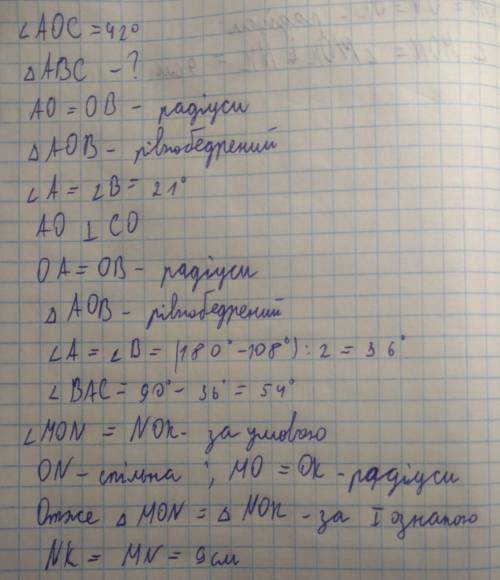 ∠AOC = 42°
△ABC - ?
AO = OB - радіуси
△AOB - рівнобедрений
∠A = ∠B = 21°
AO ⊥ CO
OA = OB - радіуси
△AOB - рівнобедрений
∠A = ∠B = (180° - 108°) : 2 = 36°
∠BAC = 90° - 36° = 54°
∠MON = NOK - за умовою
ON - спільна ; MO = OK - радіуси
Отже △MON = △NOK - за I ознакою
NK = MN = 9 см